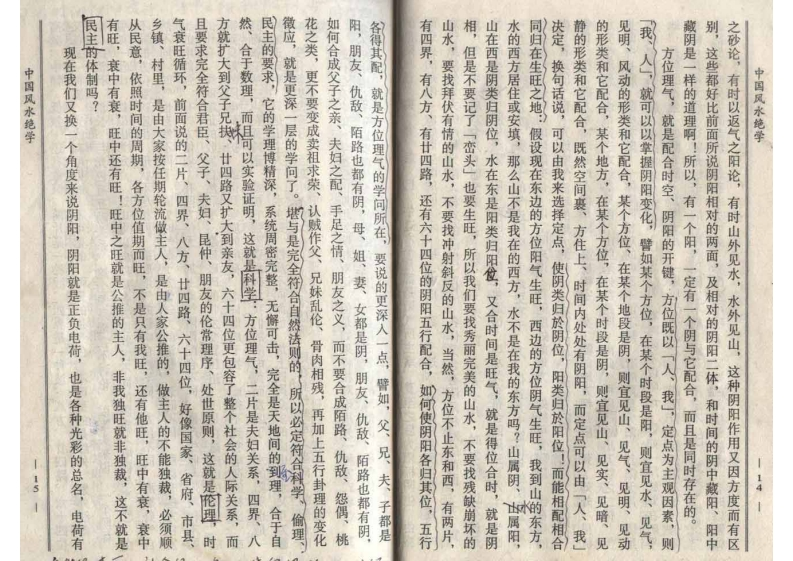 中国风水绝学
—14—
之砂论，有时以返气之阳论，有时山外见水，水外见山，这种阴阳作用又因方度而有区
别，这些都好比前面所说阴阳相对的两面，及相对的阴阳二体，和时间的阴中藏阳、阳中
藏阴是一样的道理啊！所以，有一个阳，一定有一个阴与它配合，而且是同时存在的。
方位理气，就是配合时空、阴阳的开键，方位既以「人、我」，定点为主观因素，则
「我、人」，就可以以掌握阴阳变化，譬如某个方位，在某个时段是阳，则宜见水、见气，
见明、风动的形类和它配合，某个方位、在某个地段是阴，则宜见山、见气、见明、见动
的形类和它配合，某个地方，在某个方位，在某个时段是阴，则宜见山、见实、见暗、见
静的形类和它配合，既然空间裏、方位上、时间内处处有阴阳，而定点可以由「人、我」
决定，换句话说，可以由我来选择定点，使阴类归於阴位，阳类归於阳位！而能相配相合
同归在生旺之地：假设现在东边的方位阳气生旺，西边的方位阴气生旺，我到山的东方，
水的西方居住或安填，那么山不是我在的西方，水不是在我的东方吗？山属阴、属阳，
山在西是阴类归阴位，水在东是阳类归阳位，又合时间是旺气，就是得位合时，就是阴
相，但是不要忘记了「峦头」也要生旺，所以我们要找秀丽完美的山水，不要找残缺崩坏的
山水，要找拜伏有情的山水，不要找冲射斜反的山水，当然，方位不止东和西，有两片，
有四界，有八方、有廿四路，还有六十四位的阴阳五行配合，如何使阴阳各归其位，五行
各得其配，就是方位理气的学问所在，要说的更深人一点，譬如，父、兄、夫、子都是
阳，朋友、仇敌、陌路也都有阴，母、姐、妻、女都是阴，朋友、仇敌、陌路也都有阴，
如何合成父子之亲、夫妇之配、手足之情、朋友之义，而不要合成陌路、仇敌、怨偶、桃
花之类，更不要变成卖祖求荣、认贼作父、兄妹乱伦、骨肉相残，再加上五行卦理的变化
徵应，就是更深一层的学问了。堪与是完全符合自然法则的，所以必定符合科学、伦理、
民主的要求，它的学理博精深，系统周密完整，无懈可击，完全是天地间的到理，合于自
然、合于数理，而且可以实验证明，这就是科学，方位理气，二片是夫妇关系，四界、八
方就扩大到父子兄，廿四路又扩大到亲友，六十四位更包容了整个社会的人际关系，而
且要求完全符合君臣、父子、夫妇、昆仲、朋友的伦常理序、处世原则，这就是伦理，时
气衰旺循环，前面说的二片、四界、八方、廿四路、六十四位，好像国家、省府，市县、
乡镇、村里，是由大家按任期轮流做主人，是由人家公推的，做主人的不能独裁，必须顺
从民意，依照时间的周期，各方位值期而旺，不是只有我旺，还有他旺，旺中有衰，衰中
有旺，衰中有衰，旺中还有旺！旺中之旺就是公推的主人，非我独旺就非独裁，这不就是
民主的体制吗？
现在我们又换一个角度来说阴阳，阴阳就是正负电荷，也是各种光彩的总名，电荷有
中国风水绝学
—15—